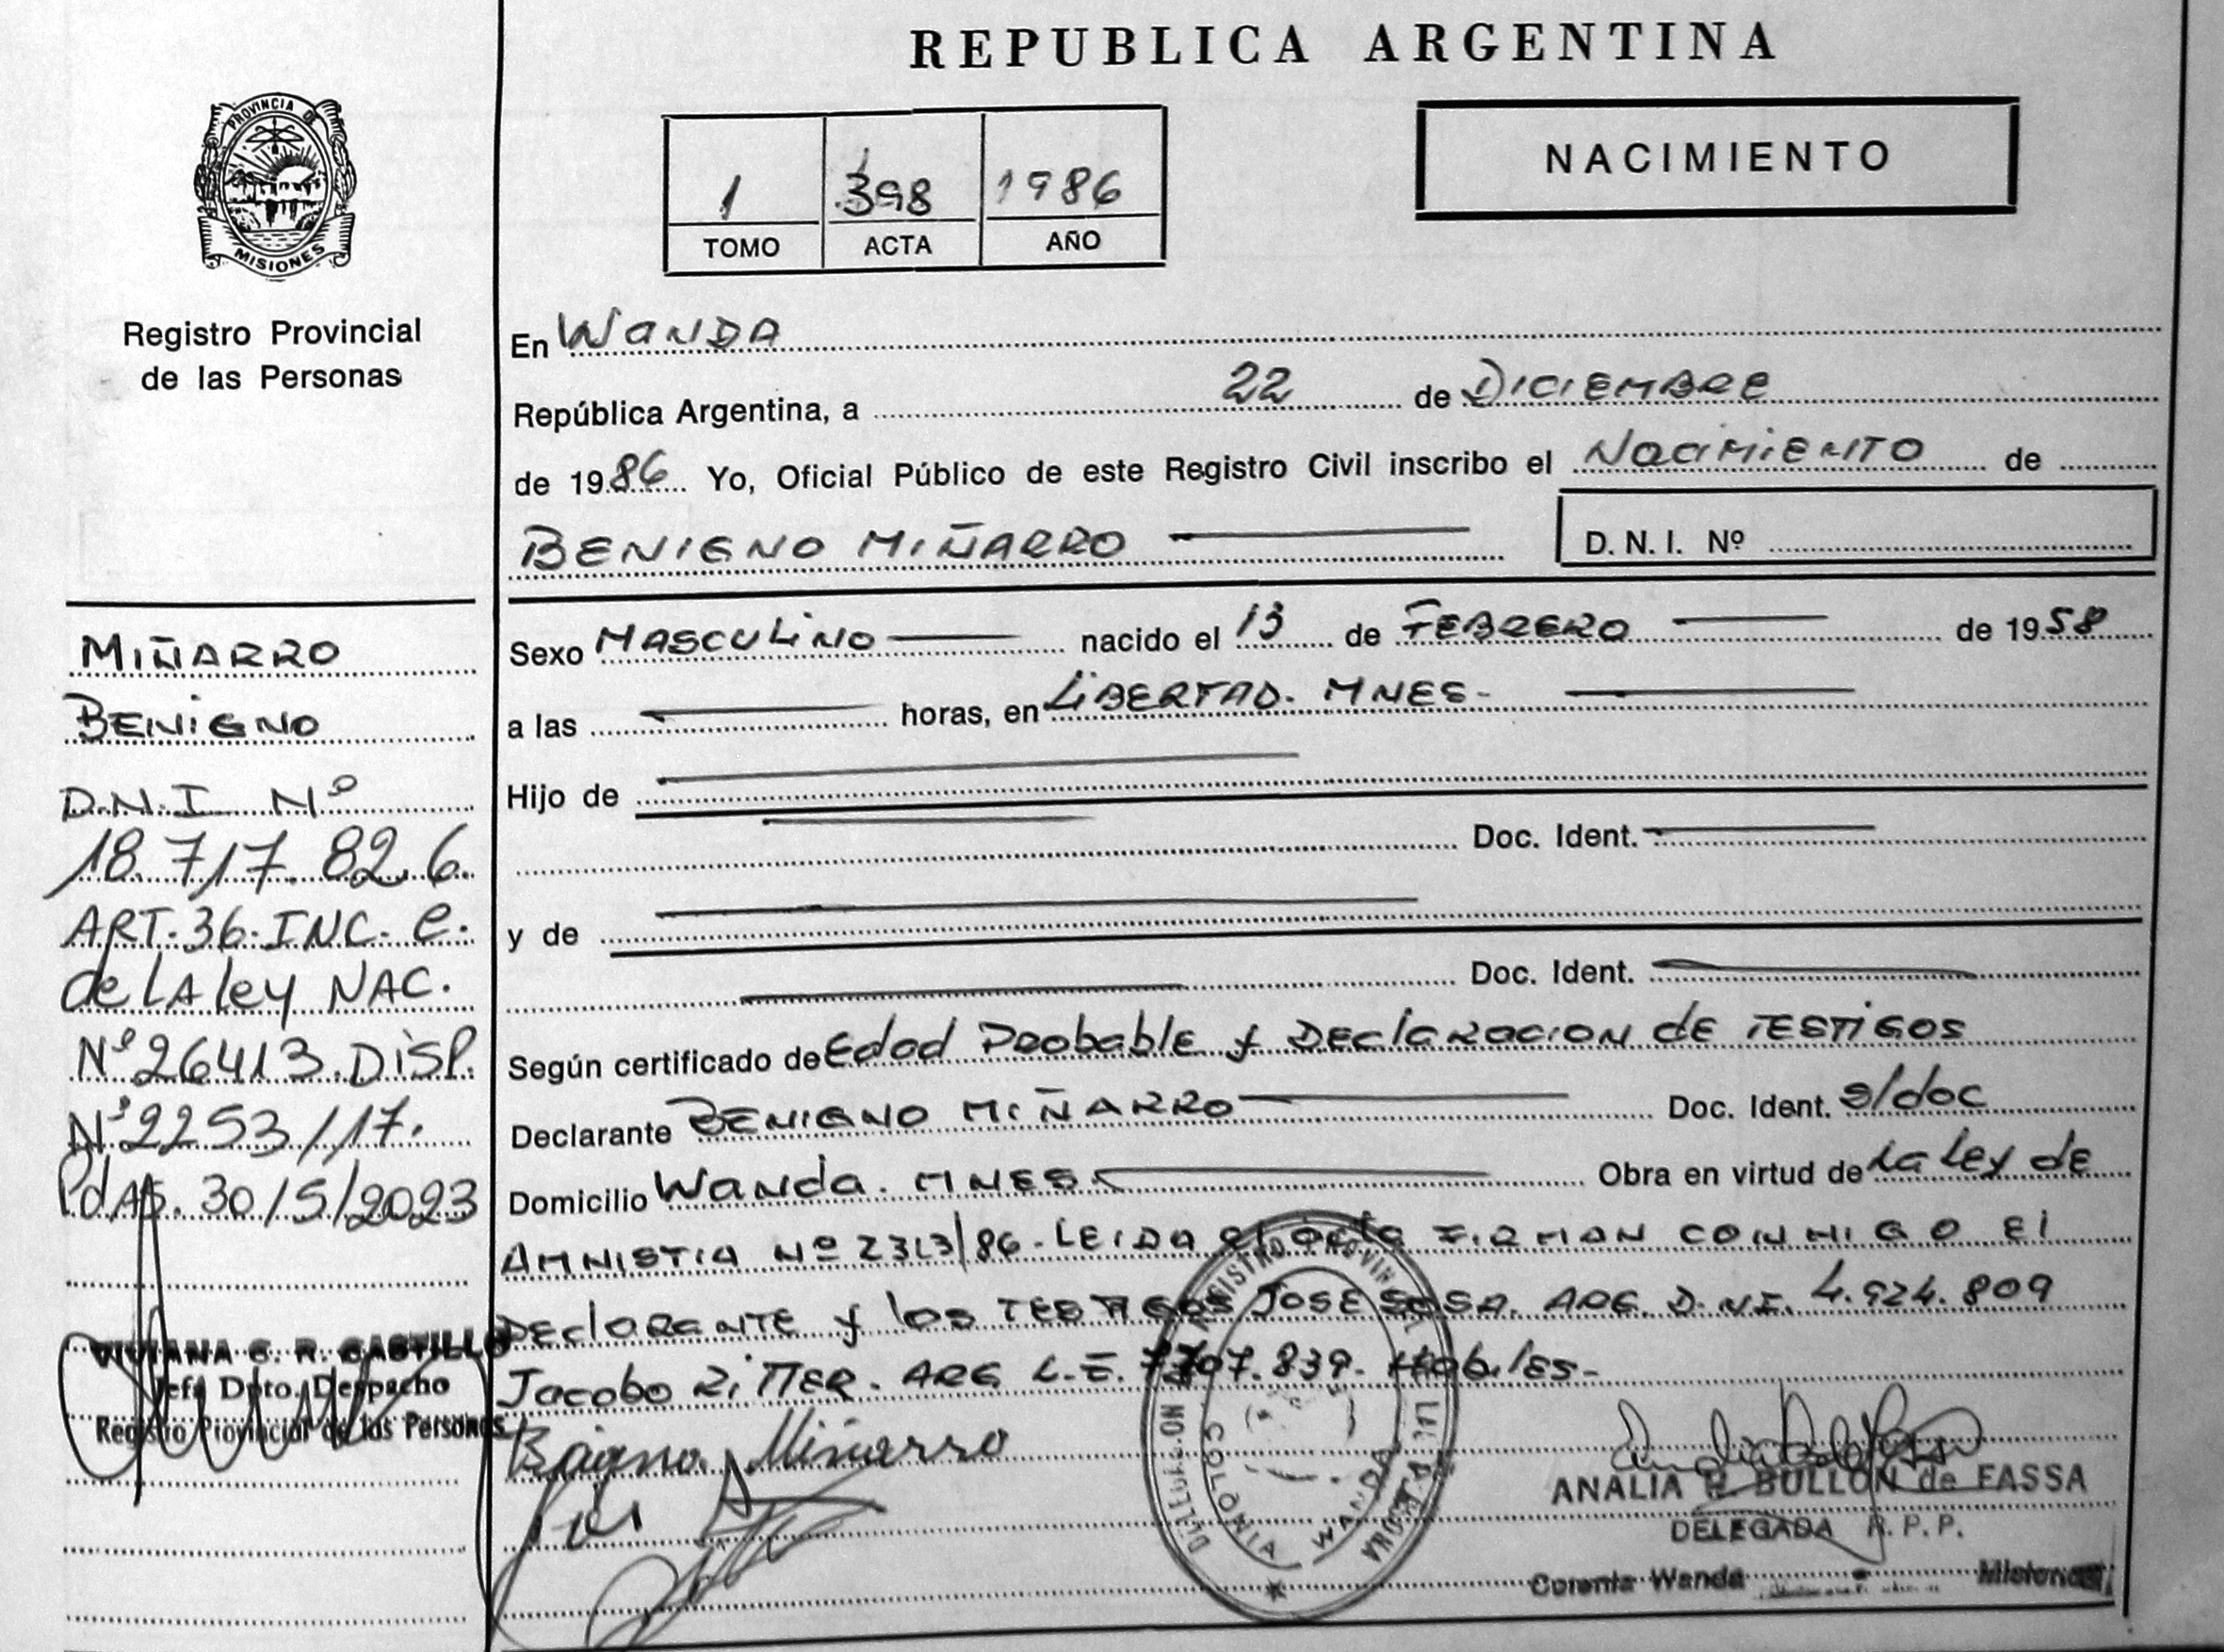 REPUBLICA ARGENTINA
PROVINCIA DE
MISIONES
Registro Provincial
de las Personas
1 398 1986
TOMO ACTA AÑO
NACIMIENTO
En WANDA
República Argentina, a 22 de DICIEMBRE
de 1986 Yo, Oficial Público de este Registro Civil inscribo el NaCIMIENTO de
BENIGNO MIÑARRO D. N. I. Nº
MIÑARRO
BENIGNO
D.N.I Nº
18.717.826.
ART.36.INC. e.
de LA ley NAC.
Nº26413.DISP.
Nº2253/17.
PdAS. 30/5/2023
VIVIANA G. R. CASTILLO
Jefa Dpto. Despacho
Registro Provincial de las Personas
Sexo MASCULINO nacido el 13 de FEBRERO de 1958
a las horas, en LIBERTAD. MNES-
Hijo de
Doc. Ident.
y de
Doc. Ident.
Según certificado de Edad Probable y DEClaRacION dE TESTIGOS
Declarante BENIGNO MIÑARRO Doc. Ident. S/doc
Domicilio Wanda. MNES Obra en virtud de La Ley de
AMNISTIA Nº 2313/86-LEIDA el acta FIRMAN CONMIGO El
DEClaRaNTE y los TESTIGOS JOSE SOSA. ARG. D.NI. 4.924.809
Jacobo RiTTER. ARG L.E. 7707.839. Habiles-
Benigno Miñarro
ANALIA BULLON de FASSA
DELEGADA R. P. P.
Colonia Wanda Misiones
REGISTRO PROVINCIAL DE LAS PERSONAS
COLONIA WANDA